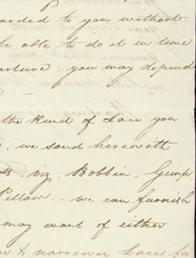 arded to you without
be able to do it in time
arture. you may depend
the kind of Lace you
we send herewith
viz Bobbin, Gimp
Pillow – we can furnish
may want of either
& narrower Lace fo